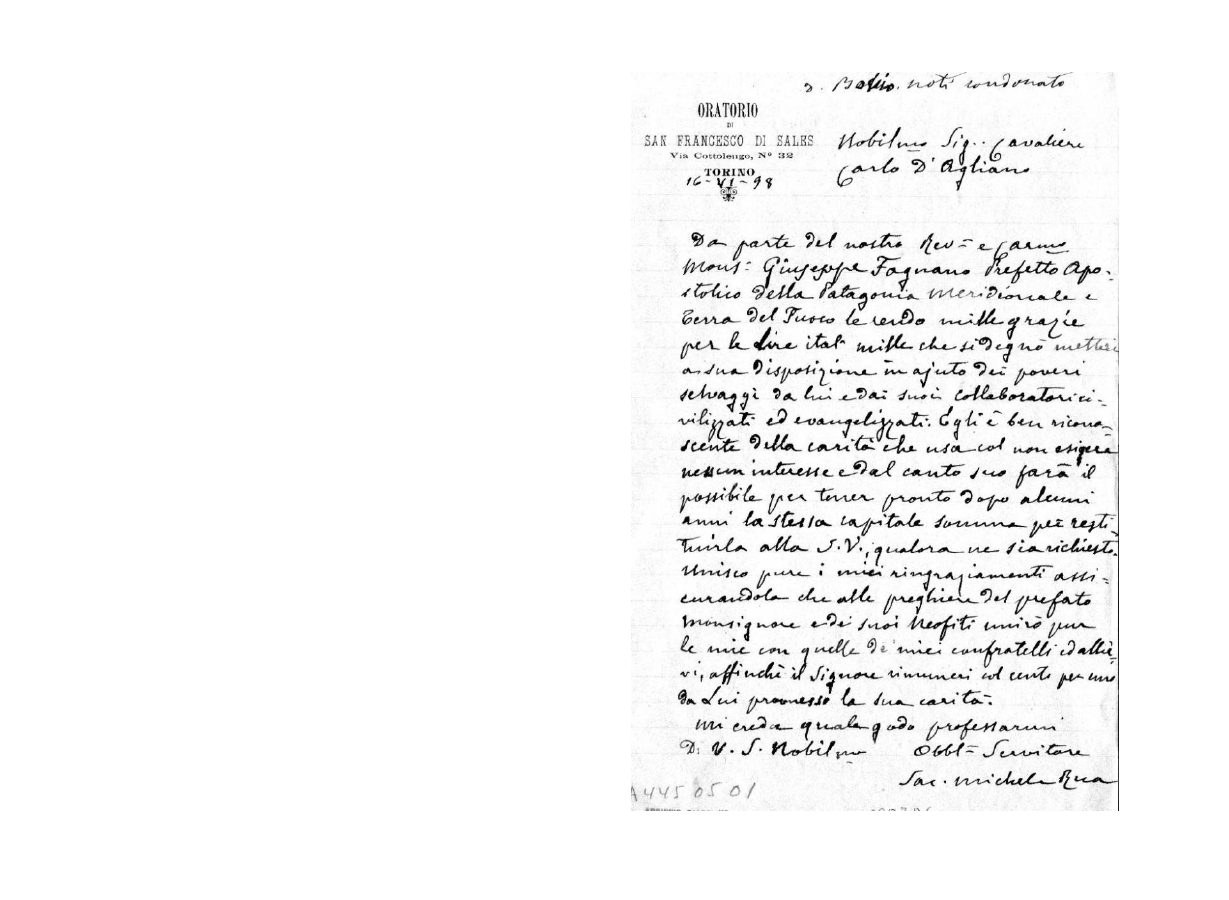 D. Belmo. noti condonato
ORATORIO
DI
SAN FRANCESCO DI SALES
Via Cottolengo, Nº 32
TORINO
16-VI-98
Nobilmo Sig.. Cavaliere
Carlo D'Agliano
Da parte del nostro Rev= e Carmo
Mons: Giuseppe Fagnano Prefetto Apo-
stolico della Patagonia Meridionale e
Terra del Fuoco le rendo mille grazie
per le Lire ital: mille che si degnò mettere
a sua disposizione in ajuto dei poveri
selvaggi da lui e dai suoi collaboratori ci-
vilizzati ed evangelizzati. Egli è ben ricono-
scente della carità che usa col non esigere
nessun interesse e dal canto suo farà il
possibile per tener pronto dopo alcuni
anni la stessa capitale somma per resti-
tuirla alla S.V., qualora ne sia richiesto.
Unisco pure i miei ringraziamenti assi-
curandola che alle preghiere del prefato
Monsignore e de' suoi Neofiti unirò pur
le mie con quelle de' miei confratelli ed allie-
vi, affinchè il Signore rimuneri col cento per uno
da Lui promesso la sua carità.
Mi creda quale godo professarmi
Di V. S. Nobilmo Obbl= Servitore
Sac. Michele Rua
A4450501